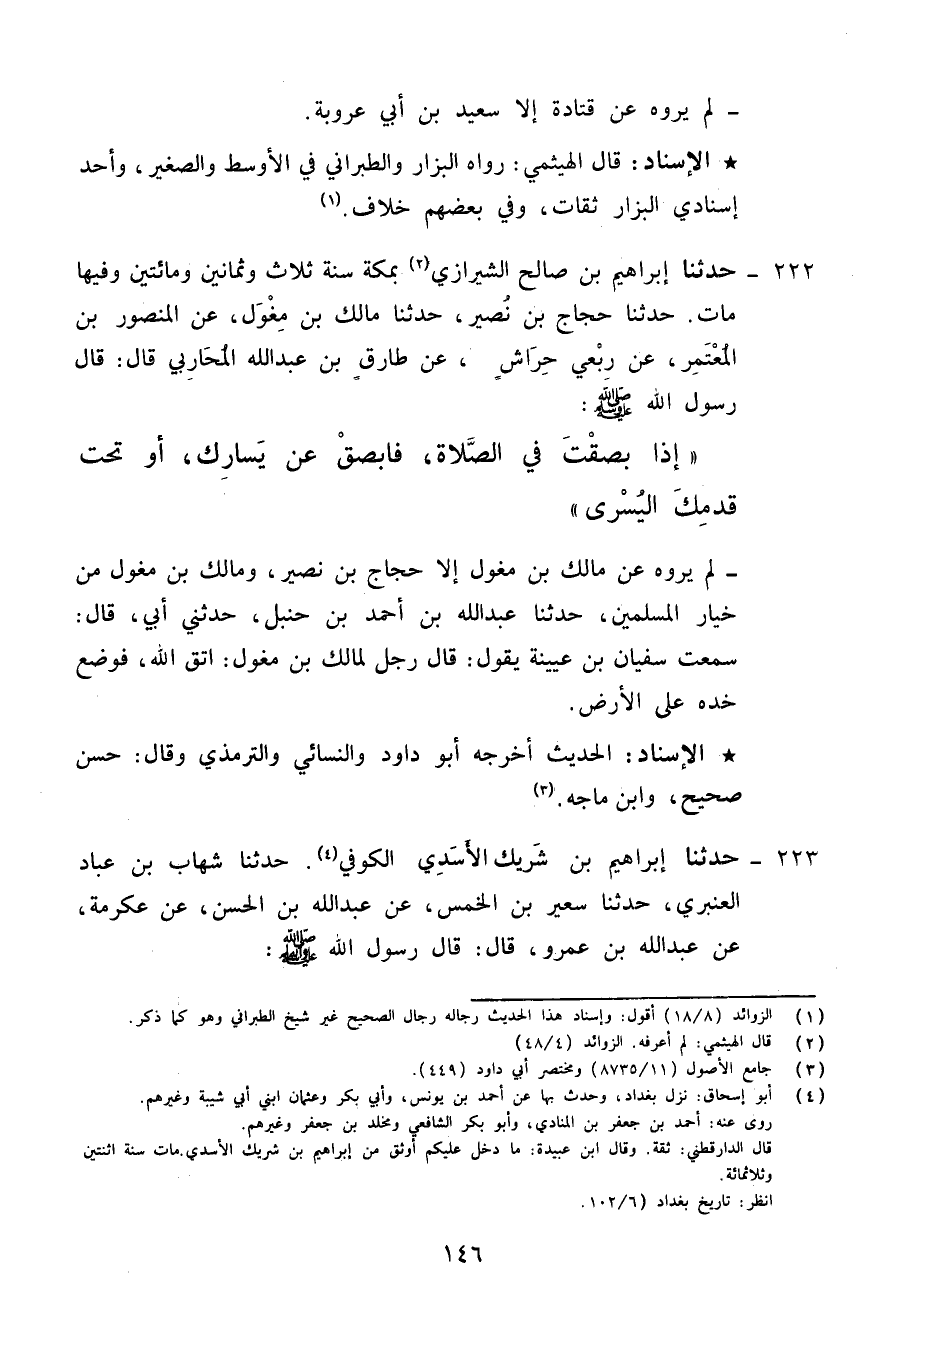 ـ لم يروه عن قتادة إلا سعيد بن أبي عروبة.
★ الإسناد: قال الهيثمي: رواه البزار والطبراني في الأوسط والصغير، وأحد
إسنادي البزار ثقات، وفي بعضهم خلاف.(١)
٢٢٢ ـ حدثنا إبراهيم بن صالح الشيرازي(٢) بمكة سنة ثلاث وثمانين ومائتين وفيها
مات. حدثنا حجاج بن نُصير، حدثنا مالك بن مِغْوَل، عن المنصور بن
المُعْتَمِر، عن رِبْعي حِرَاشٍ ، عن طارقٍ بن عبدالله المُحَاربي قال: قال
رسول الله ﷺ:
« إذا بصقْتَ في الصَّلاة، فابصقْ عن يَسارِك، أو تحت
قدمِكَ اليُسْرى »
ـ لم يروه عن مالك بن مغول إلا حجاج بن نصير، ومالك بن مغول من
خيار المسلمين، حدثنا عبدالله بن أحمد بن حنبل، حدثني أبي، قال:
سمعت سفيان بن عيينة يقول: قال رجل لمالك بن مغول: اتق الله، فوضع
خده على الأرض.
★ الإسناد: الحديث أخرجه أبو داود والنسائي والترمذي وقال: حسن
صحيح، وابن ماجه.(٣)
٢٢٣ ـ حدثنا إبراهيم بن شَريك الأَسَدِي الكوفي(٤). حدثنا شهاب بن عباد
العنبري، حدثنا سعير بن الخمس، عن عبدالله بن الحسن، عن عكرمة،
عن عبدالله بن عمرو، قال: قال رسول الله ﷺ:
(١) الزوائد (١٨/٨) أقول: وإسناد هذا الحديث رجاله رجال الصحيح غير شيخ الطبراني وهو كما ذكر.
(٢) قال الهيثمي: لم أعرفه. الزوائد (٤٨/٤)
(٣) جامع الأصول (٨٧٣٥/١١) ومختصر أبي داود (٤٤٩).
(٤) أبو إسحاق: نزل بغداد، وحدث بها عن أحمد بن يونس، وأبي بكر وعثمان ابني أبي شيبة وغيرهم.
روى عنه: أحمد بن جعفر بن المنادي، وأبو بكر الشافعي ومخلد بن جعفر وغيرهم.
قال الدارقطني: ثقة. وقال ابن عبيدة: ما دخل عليكم أوثق من إبراهيم بن شريك الأسدي.مات سنة اثنتين
وثلاثمائة.
انظر: تاريخ بغداد (١٠٢/٦.
١٤٦